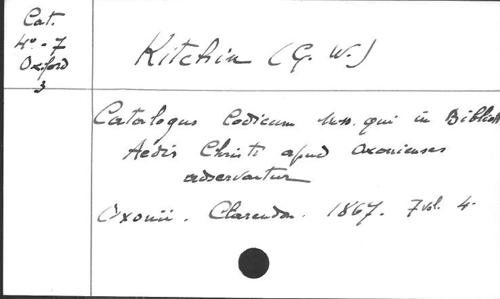 Cat.
4º - 7
Oxford
3
Kitchin (G. W.)
Catalogus Codicum Mss. qui in Biblioth
Aedis Christi apud Oxonienses
adservantur
Oxonii. Clarendon. 1867. 7 vol. 4.